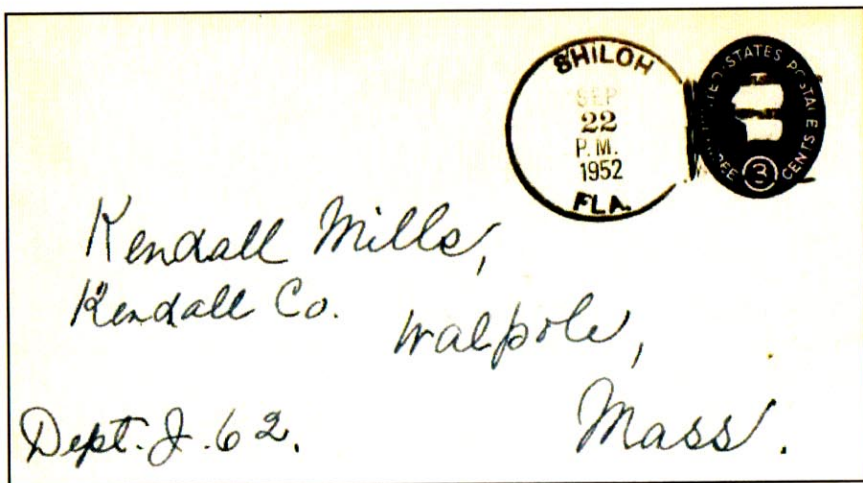 SHILOH
SEP
22
P.M.
1952
FLA.
UNITED STATES POSTAGE
THREE 3 CENTS
Kendall Mills,
Kendall Co.
Walpole,
Mass.
Dept. J. 62.